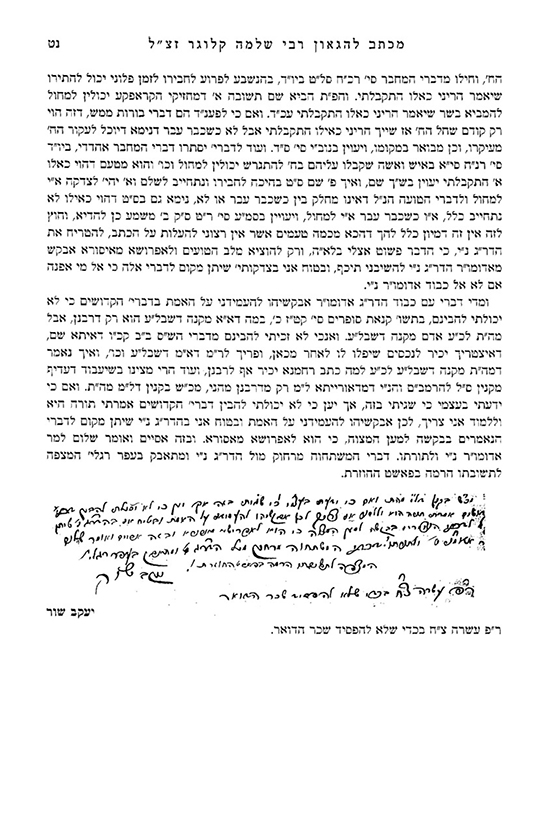 מכתב להגאון רבי שלמה קלוגר זצ״ל נט
הח׳, וחילו מדברי המחבר סי׳ רכ״ח סל״ט ביו״ד, בהנשבע לפרוע לחבירו לזמן פלוני יכול להתירו
שיאמר הריני כאלו התקבלתי. והפ״ת הביא שם תשובה א׳ דמחזיקי הקראפקע יכולין למחול
להמביא בשר שיאמר הריני כאלו התקבלתי עכ״ד. ואם כי לפענ״ד הם דברי בורות ממש, דזה הוי
רק קודם שחל הח׳ אז שייך הריני כאילו התקבלתי אבל לא כשכבר עבר דנימא דיוכל לעקור הח׳
מעיקרו, וכן מבואר במקומו, ויעוין בנוב״י סי׳ ס״ד. ועוד לדברי׳ יסתרו דברי המחבר אהדדי, ביו״ד
סי׳ רנ״ה סי״א באיש ואשה שקבלו עליהם בח׳ להתגרש יכולין למחול וכו׳ והוא מטעם דהוי כאלו
א׳ התקבלתי יעוין בש״ך שם, ואיך פ׳ שם ס״ט בהיכה לחבירו ונתחייב לשלם וא׳ יהי׳ לצדקה א״י
למחול ולדברי הטועה הנ״ל דאינו מחלק בין כשכבר עבר או לא, נימא גם בס״ט דהוי כאילו לא
נתחייב כלל, א״ו כשכבר עבר א״י למחול, ויעויין בסמ״ע סי׳ ר״ט ס״ק ב׳ משמע כן להדיא, והוץ
לזה אין זה דמיון כלל להך דהכא מכמה טעמים אשר אין רצוני להעלות על הכתב, להטריח את
הדר״ג נ״י, כי הדבר פשוט אצלי בלא״ה, ורק להוציא מלב הטועים ולאפרושא מאיסורא אבקש
מאדומו״ר הדר״ג נ״י להשיבני תיכף, ובטוח אני בצדקותי׳ שיתן מקום לדברי אלה כי אל מי אפנה
אם לא אל כבוד אדומו״ר נ״י.
ומדי דברי עם כבוד הדר״ג אדומו״ר אבקשיהו להעמידני על האמת בדברי׳ הקדושים כי לא
יכולתי להבינם, בתשו׳ קנאת סופרים סי׳ קט״ז כ׳, במה דא״א מקנה דשבל״ע הוא רק דרבנן, אבל
מה״ת לכ״ע אדם מקנה דשבל״ע. ואנכי לא זכיתי להבינם מדברי הש״ס ב״ב קכ״ו דאיתא שם,
דאיצטריך יכיר לנכסים שיפלו לו לאחר מכאן, ופריך לר״מ דא״מ דשבל״ע וכו׳, ואיך נאמר
דמה״ת מקנה דשבל״ע לכ״ע למה כתב רחמנא יכיר אף לרבנן, ועוד הרי מצינו בשיעבוד דעדיף
מקנין ס״ל להרמב״ם והנ״י דמדאורייתא ל״מ רק מדרבנן מהני, מכ״ש בקנין דל״מ מה״ת. ואם כי
ידעתי בעצמי כי שניתי בזה, אך יען כי לא יכולתי להבין דברי׳ הקדושים אמרתי תורה היא
וללמוד אני צריך, לכן אבקשיהו להעמידני על האמת ובטוח אני בהדר״ג נ״י שיתן מקום לדברי
הנאמרים בבקשה למען המצוה, כי הוא לאפרושא מאסורא. ובזה אסיים ואומר שלום למר
אדומו״ר נ״י ולתורתו. דברי המשתחוה מרחוק מול הדר״ג נ״י ומתאבק בעפר רגלי׳ המצפה
לתשובתו הרמה בפאשט ההוזרת.
יעקב שור
ר״פ עשרה צ״ח בכדי שלא להפסיד שכר הדואר.